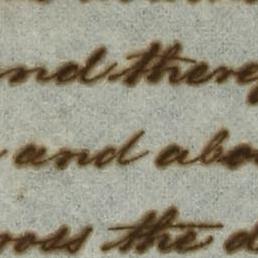 and there
and abo
ross the d